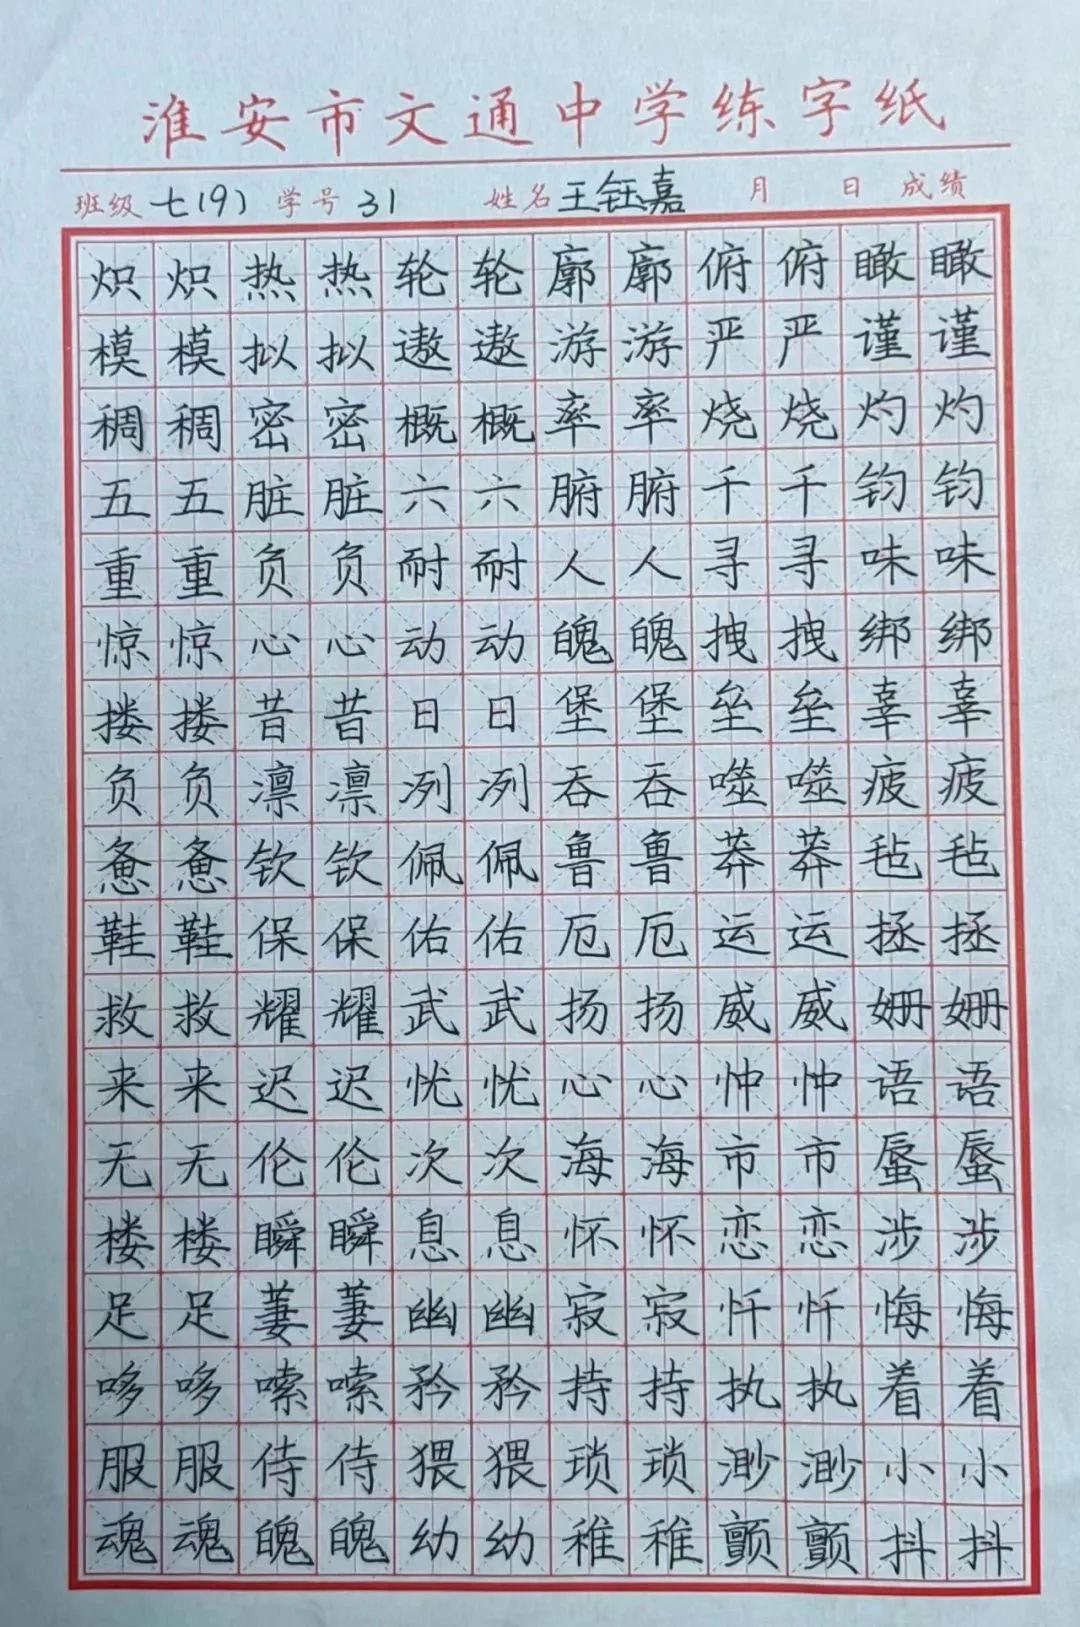 淮安市文通中学练字纸
班级 七(9) 学号 31 姓名 王钰嘉 月 日 成绩
炽炽热热轮轮廓廓俯俯瞰瞰
模模拟拟遨遨游游严严谨谨
稠稠密密概概率率烧烧灼灼
五五脏脏六六腑腑千千钧钧
重重负负耐耐人人寻寻味味
惊惊心心动动魄魄拽拽绑绑
搂搂昔昔日日堡堡垒垒辜辜
负负凛凛冽冽吞吞噬噬疲疲
惫惫钦钦佩佩鲁鲁莽莽毡毡
鞋鞋保保佑佑厄厄运运拯拯
救救耀耀武武扬扬威威姗姗
来来迟迟忧忧心心忡忡语语
无无伦伦次次海海市市蜃蜃
楼楼瞬瞬息息怀怀恋恋涉涉
足足萋萋幽幽寂寂忏忏悔悔
哆哆嗦嗦矜矜持持执执着着
服服侍侍猥猥琐琐渺渺小小
魂魂魄魄幼幼稚稚颤颤抖抖